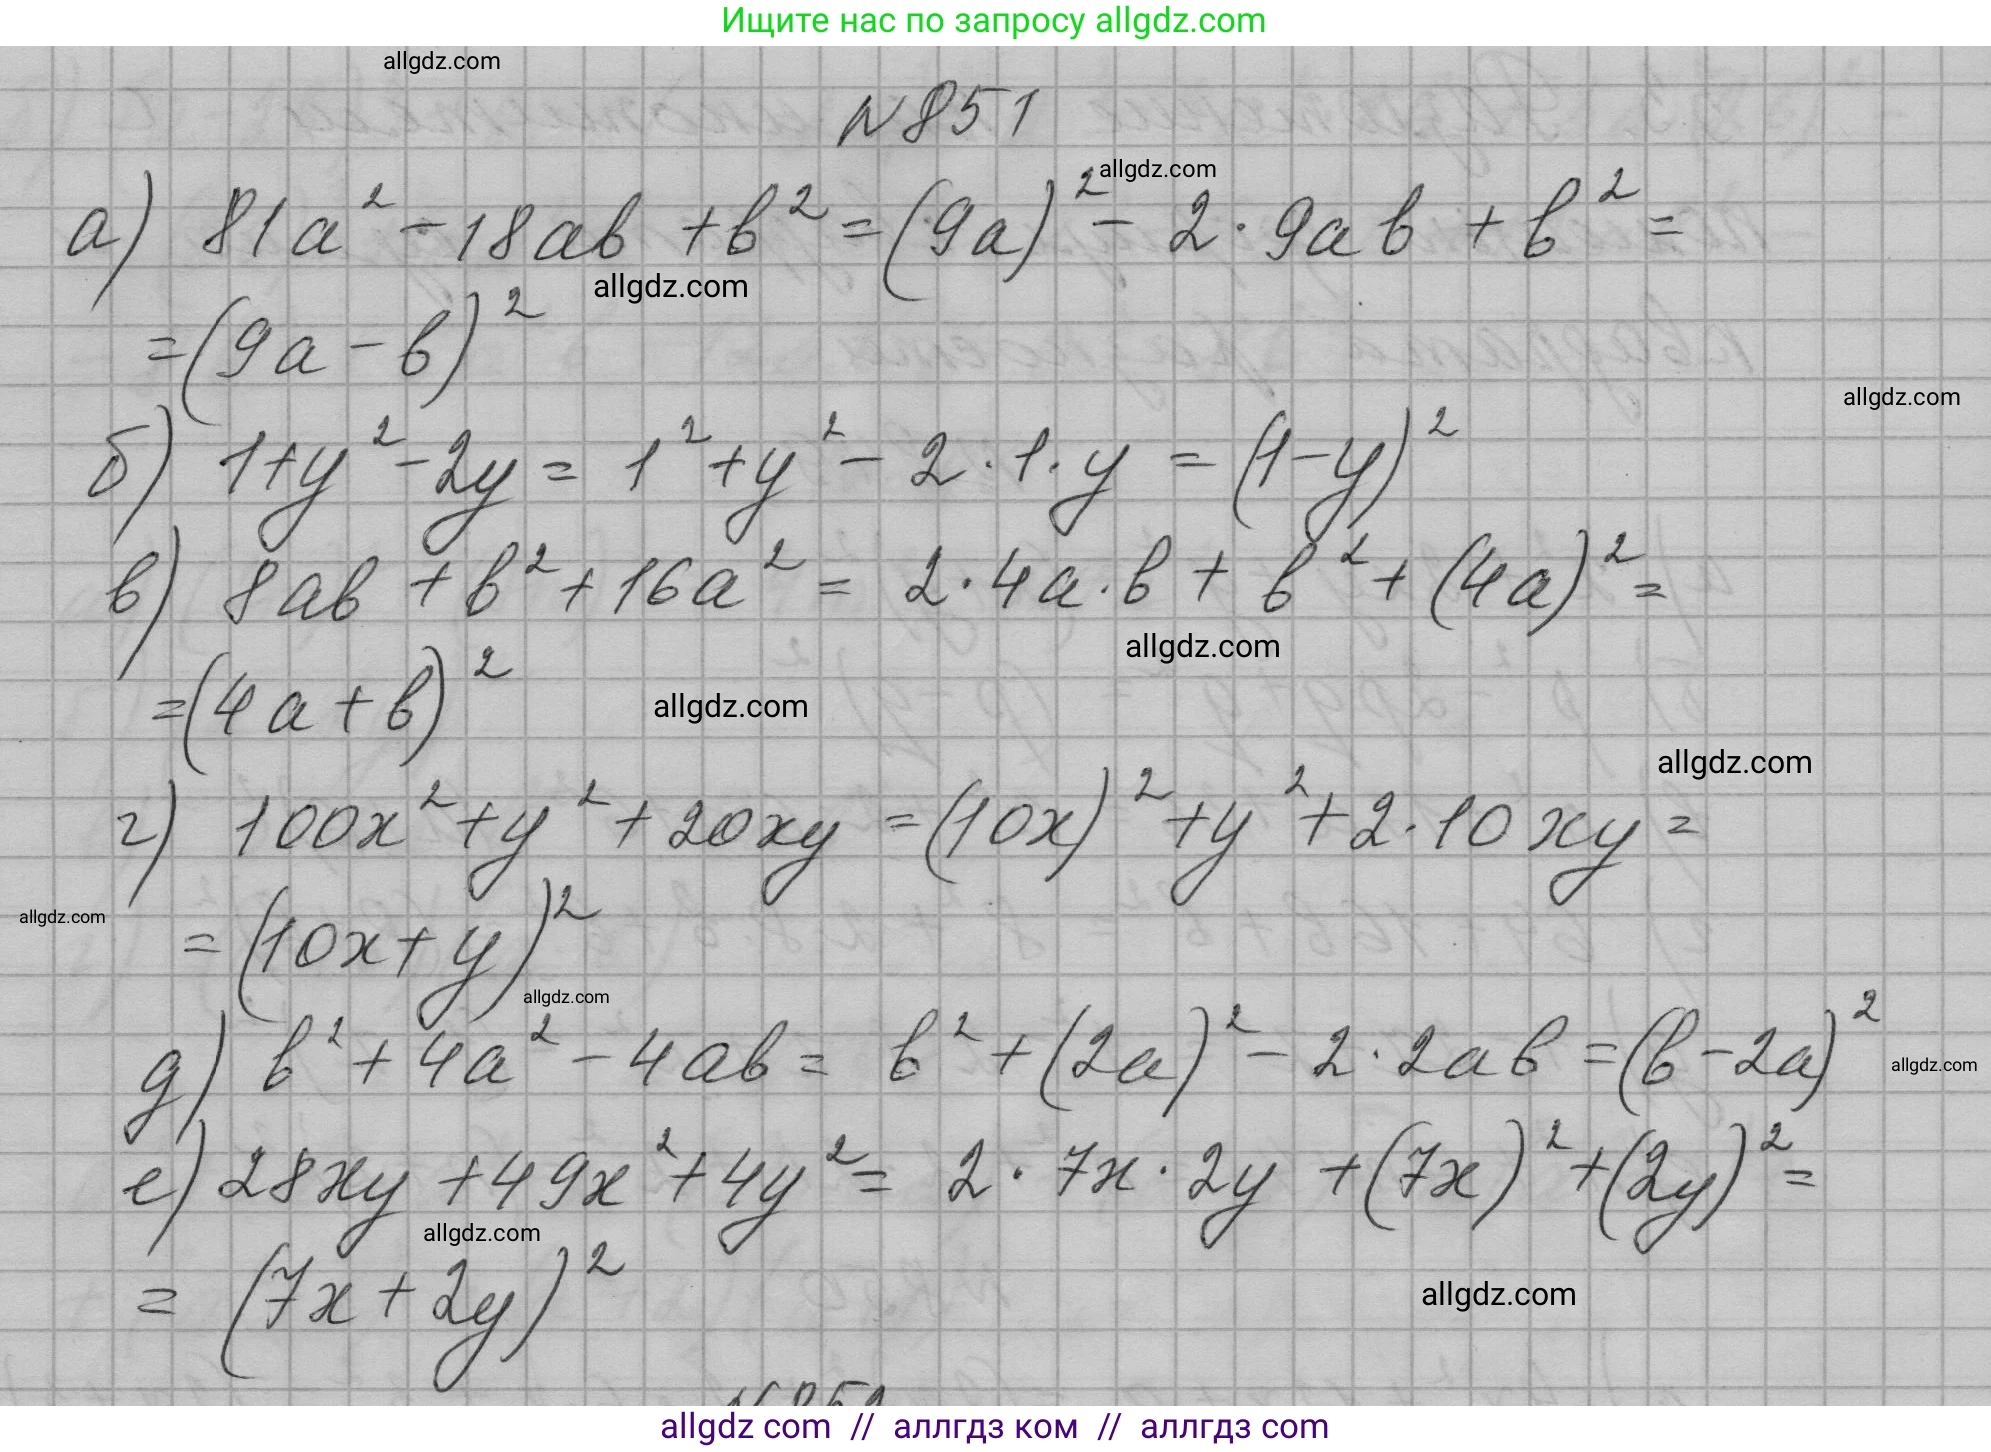 Ищите нас по запросу allgdz.com
allgdz.com
N851
allgdz.com
а) 81a² - 18ab + b² = (9a)² - 2 · 9ab + b² =
allgdz.com
= (9a - b)²
allgdz.com
б) 1 + y² - 2y = 1² + y² - 2 · 1 · y = (1 - y)²
в) 8ab + b² + 16a² = 2 · 4a · b + b² + (4a)² =
allgdz.com
= (4a + b)²
allgdz.com
allgdz.com
г) 100x² + y² + 20xy = (10x)² + y² + 2 · 10xy =
allgdz.com
= (10x + y)²
allgdz.com
д) b² + 4a² - 4ab = b² + (2a)² - 2 · 2ab = (b - 2a)²
allgdz.com
е) 28xy + 49x² + 4y² = 2 · 7x · 2y + (7x)² + (2y)² =
allgdz.com
= (7x + 2y)²
allgdz.com
allgdz com // аллгдз ком // аллгдз com